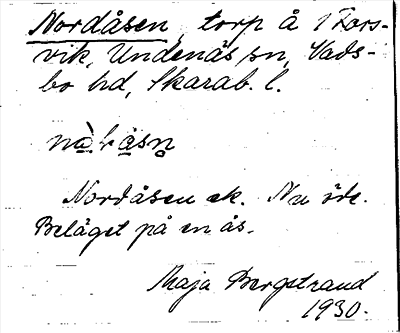 Nordåsen, torp å 1 Fors-
vik, Undenäs sn, Vads-
bo hd, Skarab. l.
Nordåsen ek. Nu öde.
Beläget på en ås.
Maja Bergstrand
1930.